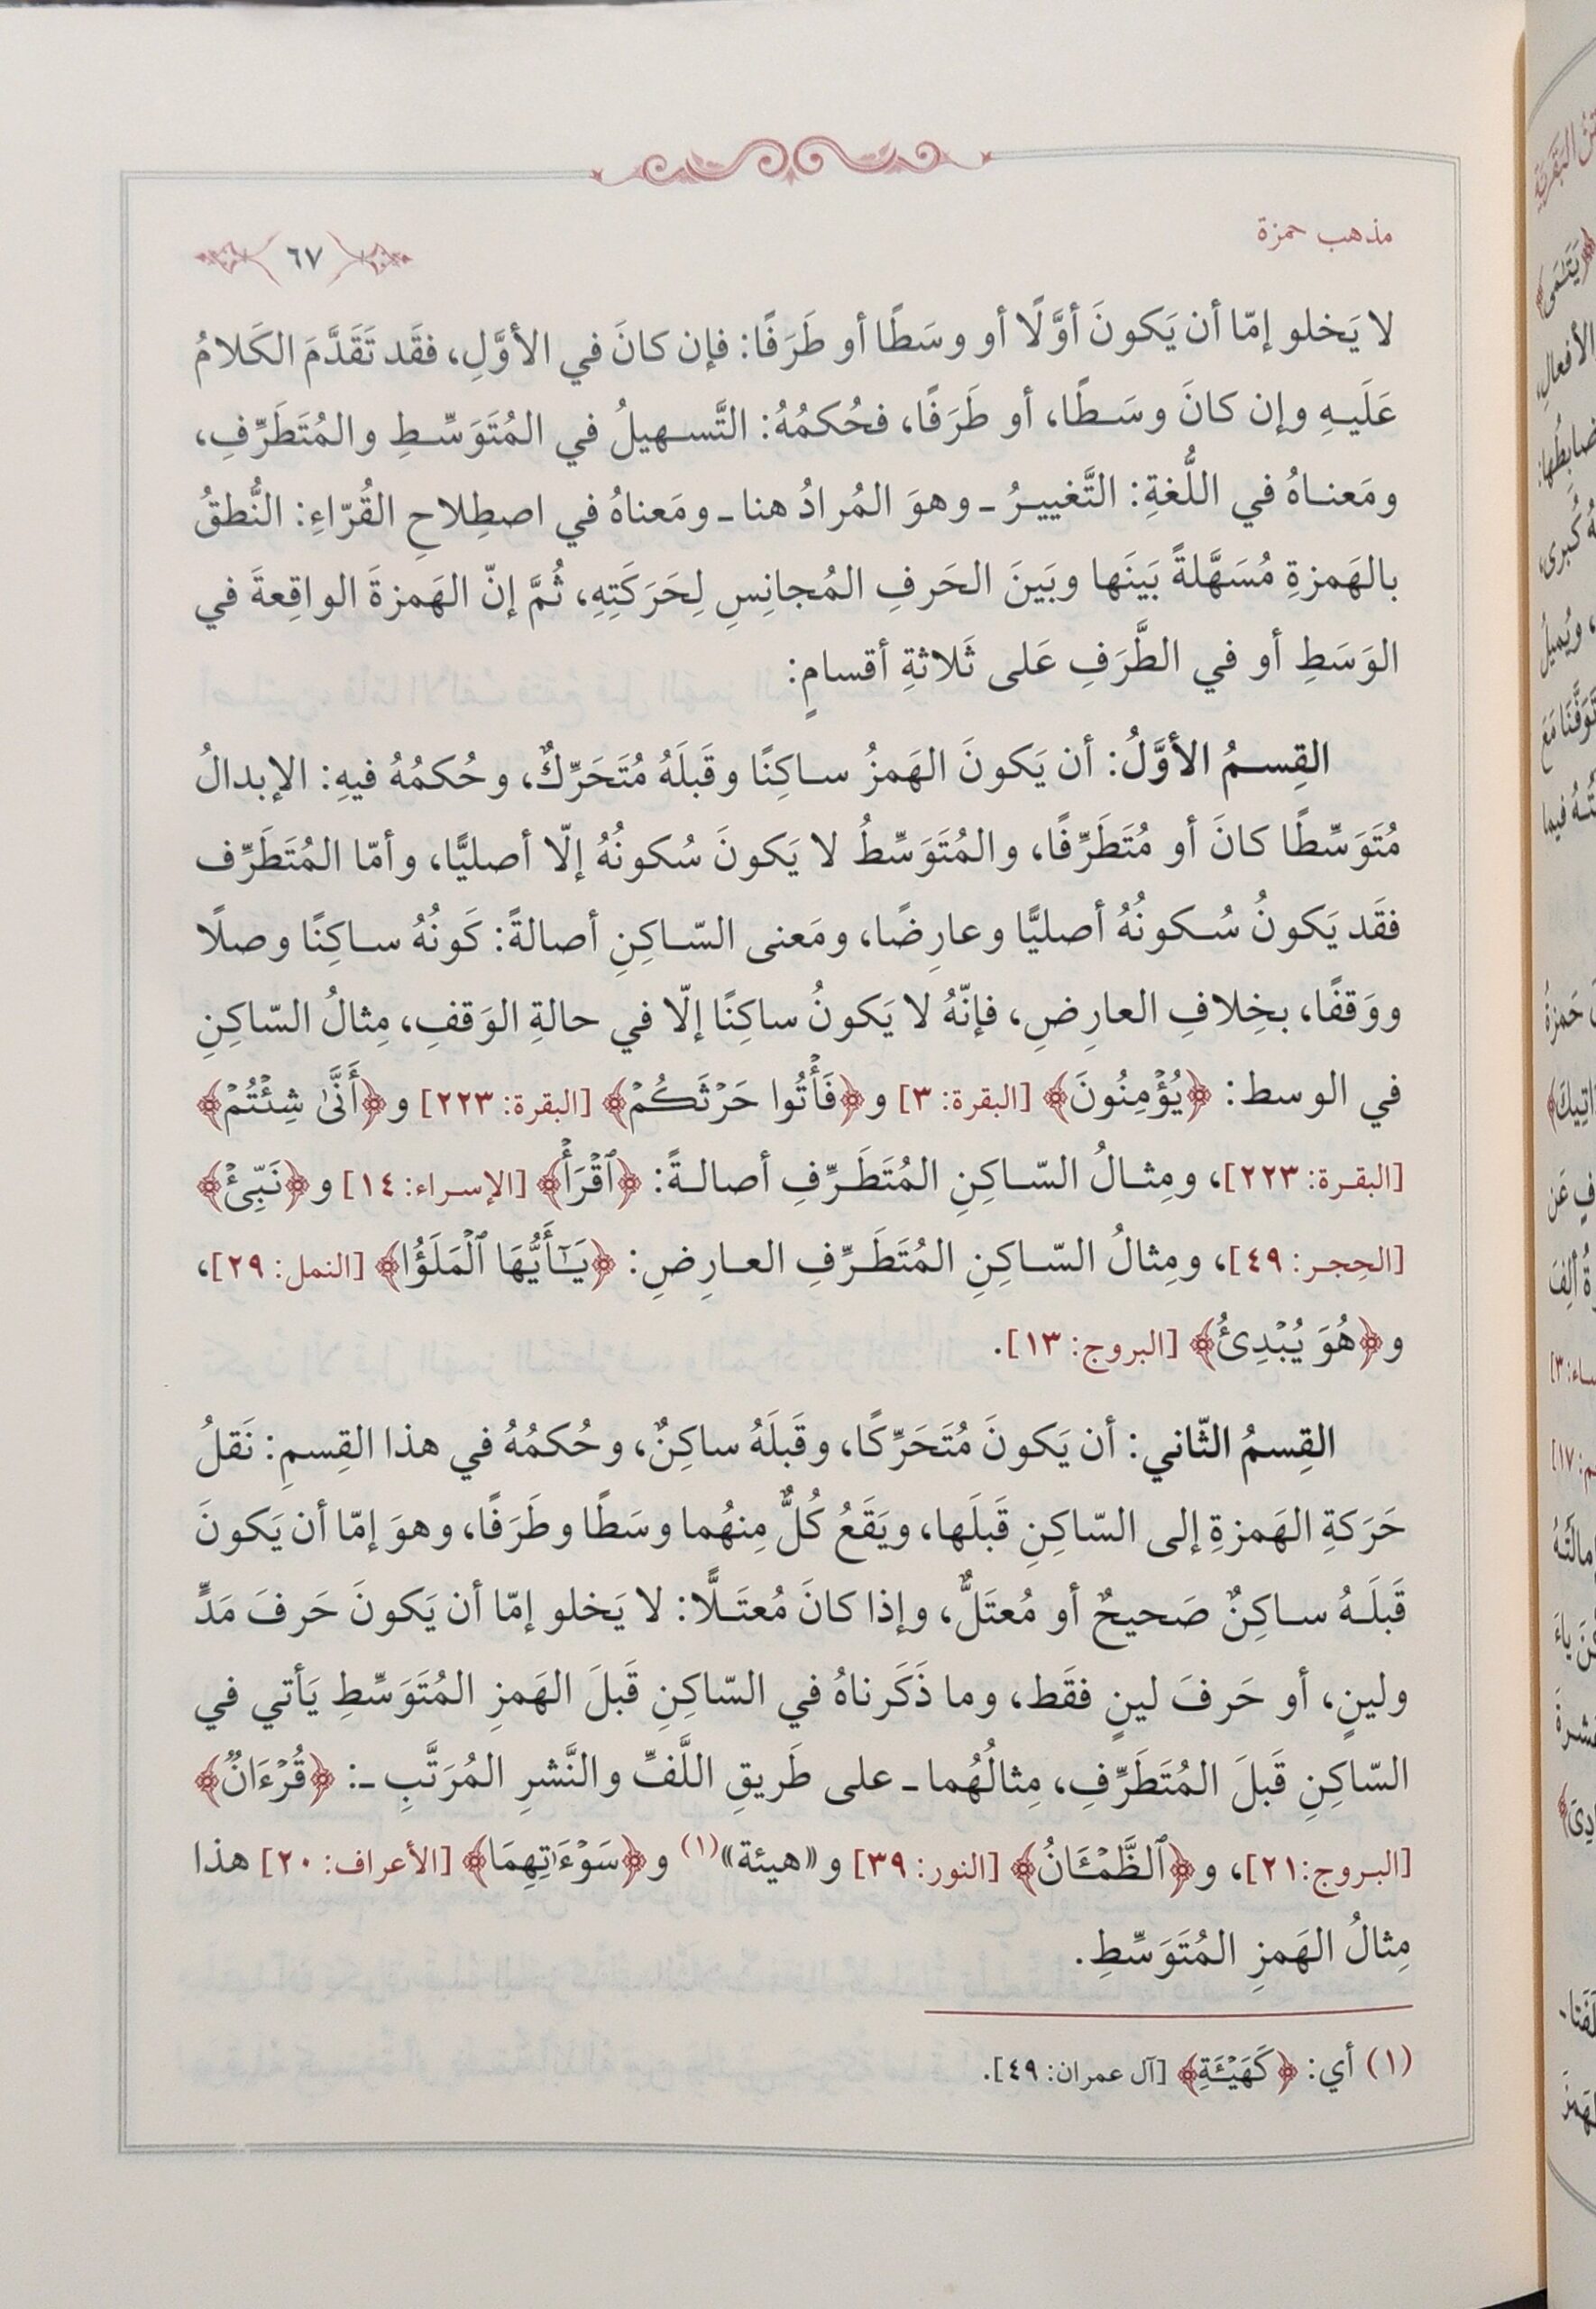 مذهب حمزة
٦٧
لا يَخلو إمّا أن يَكونَ أوَّلًا أو وسَطًا أو طَرَفًا: فإن كانَ في الأوَّلِ، فقَد تَقَدَّمَ الكَلامُ
عَلَيهِ وإن كانَ وسَـطًا، أو طَرَفًا، فحُكمُهُ: التَّسـهيلُ في المُتَوَسِّـطِ والمُتَطَرِّفِ،
ومَعنـاهُ في اللُّغةِ: التَّغييـرُ ـ وهوَ المُرادُ هنا ـ ومَعناهُ في اصطِلاحِ القُرّاءِ: النُّطقُ
بالهَمزةِ مُسَهَّلةً بَينَها وبَينَ الحَرفِ المُجانِسِ لِحَرَكَتِهِ، ثُمَّ إنّ الهَمزةَ الواقِعةَ في
الوَسَطِ أو في الطَّرَفِ عَلى ثَلاثةِ أقسامٍ:
القِسـمُ الأوَّلُ: أن يَكونَ الهَمزُ سـاكِنًا وقَبلَهُ مُتَحَرِّكٌ، وحُكمُهُ فيهِ: الإبدالُ
مُتَوَسِّطًا كانَ أو مُتَطَرِّفًا، والمُتَوَسِّطُ لا يَكونَ سُكونُهُ إلّا أصليًّا، وأمّا المُتَطَرِّف
فقَد يَكونُ سُـكونُهُ أصليًّا وعارِضًا، ومَعنى السّـاكِنِ أصالةً: كَونُهُ سـاكِنًا وصلًا
ووَقفًا، بخِلافِ العارِضِ، فإنّهُ لا يَكونُ ساكِنًا إلّا في حالةِ الوَقفِ، مِثالُ السّاكِنِ
في الوسط: ﴿يُؤۡمِنُونَ﴾ [البقرة: ٣] و﴿فَأۡتُوا حَرۡثَكُمۡ﴾ [البقرة: ٢٢٣] و﴿أَنَّىٰ شِئۡتُمۡ﴾
[البقـرة: ٢٢٣]، ومِثـالُ السّـاكِنِ المُتَطَـرِّفِ أصالـةً: ﴿ٱقۡرَأۡ﴾ [الإسـراء: ١٤] و﴿نَبِّئۡ﴾
[الحِجـر: ٤٩]، ومِثالُ السّـاكِنِ المُتَطَـرِّفِ العـارِضِ: ﴿يَـٰٓأَيُّهَا ٱلۡمَلَؤُا﴾ [النمل: ٢٩]،
و﴿هُوَ يُبۡدِئُ﴾ [البروج: ١٣].
القِسمُ الثّاني: أن يَكونَ مُتَحَرِّكًا، وقَبلَهُ ساكِنٌ، وحُكمُهُ في هذا القِسمِ: نَقلُ
حَرَكةِ الهَمزةِ إلى السّاكِنِ قَبلَها، ويَقَعُ كُلٌّ مِنهُما وسَطًا وطَرَفًا، وهوَ إمّا أن يَكونَ
قَبلَـهُ سـاكِنٌ صَحيحٌ أو مُعتَلٌّ، وإذا كانَ مُعتَـلًّا: لا يَخلو إمّا أن يَكونَ حَرفَ مَدٍّ
ولينٍ، أو حَرفَ لينٍ فقَط، وما ذَكَرناهُ في السّاكِنِ قَبلَ الهَمزِ المُتَوَسِّطِ يَأتي في
السّاكِنِ قَبلَ المُتَطَرِّفِ، مِثالُهُما ـ على طَريقِ اللَّفِّ والنَّشرِ المُرَتَّبِ ـ: ﴿قُرۡءَانٌ﴾
[البـروج:٢١]، و﴿ٱلظَّمۡـَٔانُ﴾ [النور: ٣٩] و«هيئة»(١) و﴿سَوۡءَٰتِهِمَا﴾ [الأعراف: ٢٠] هذا
مِثالُ الهَمزِ المُتَوَسِّطِ.
(١) أي: ﴿كَهَيۡـَٔةِ﴾ [آل عمران: ٤٩].